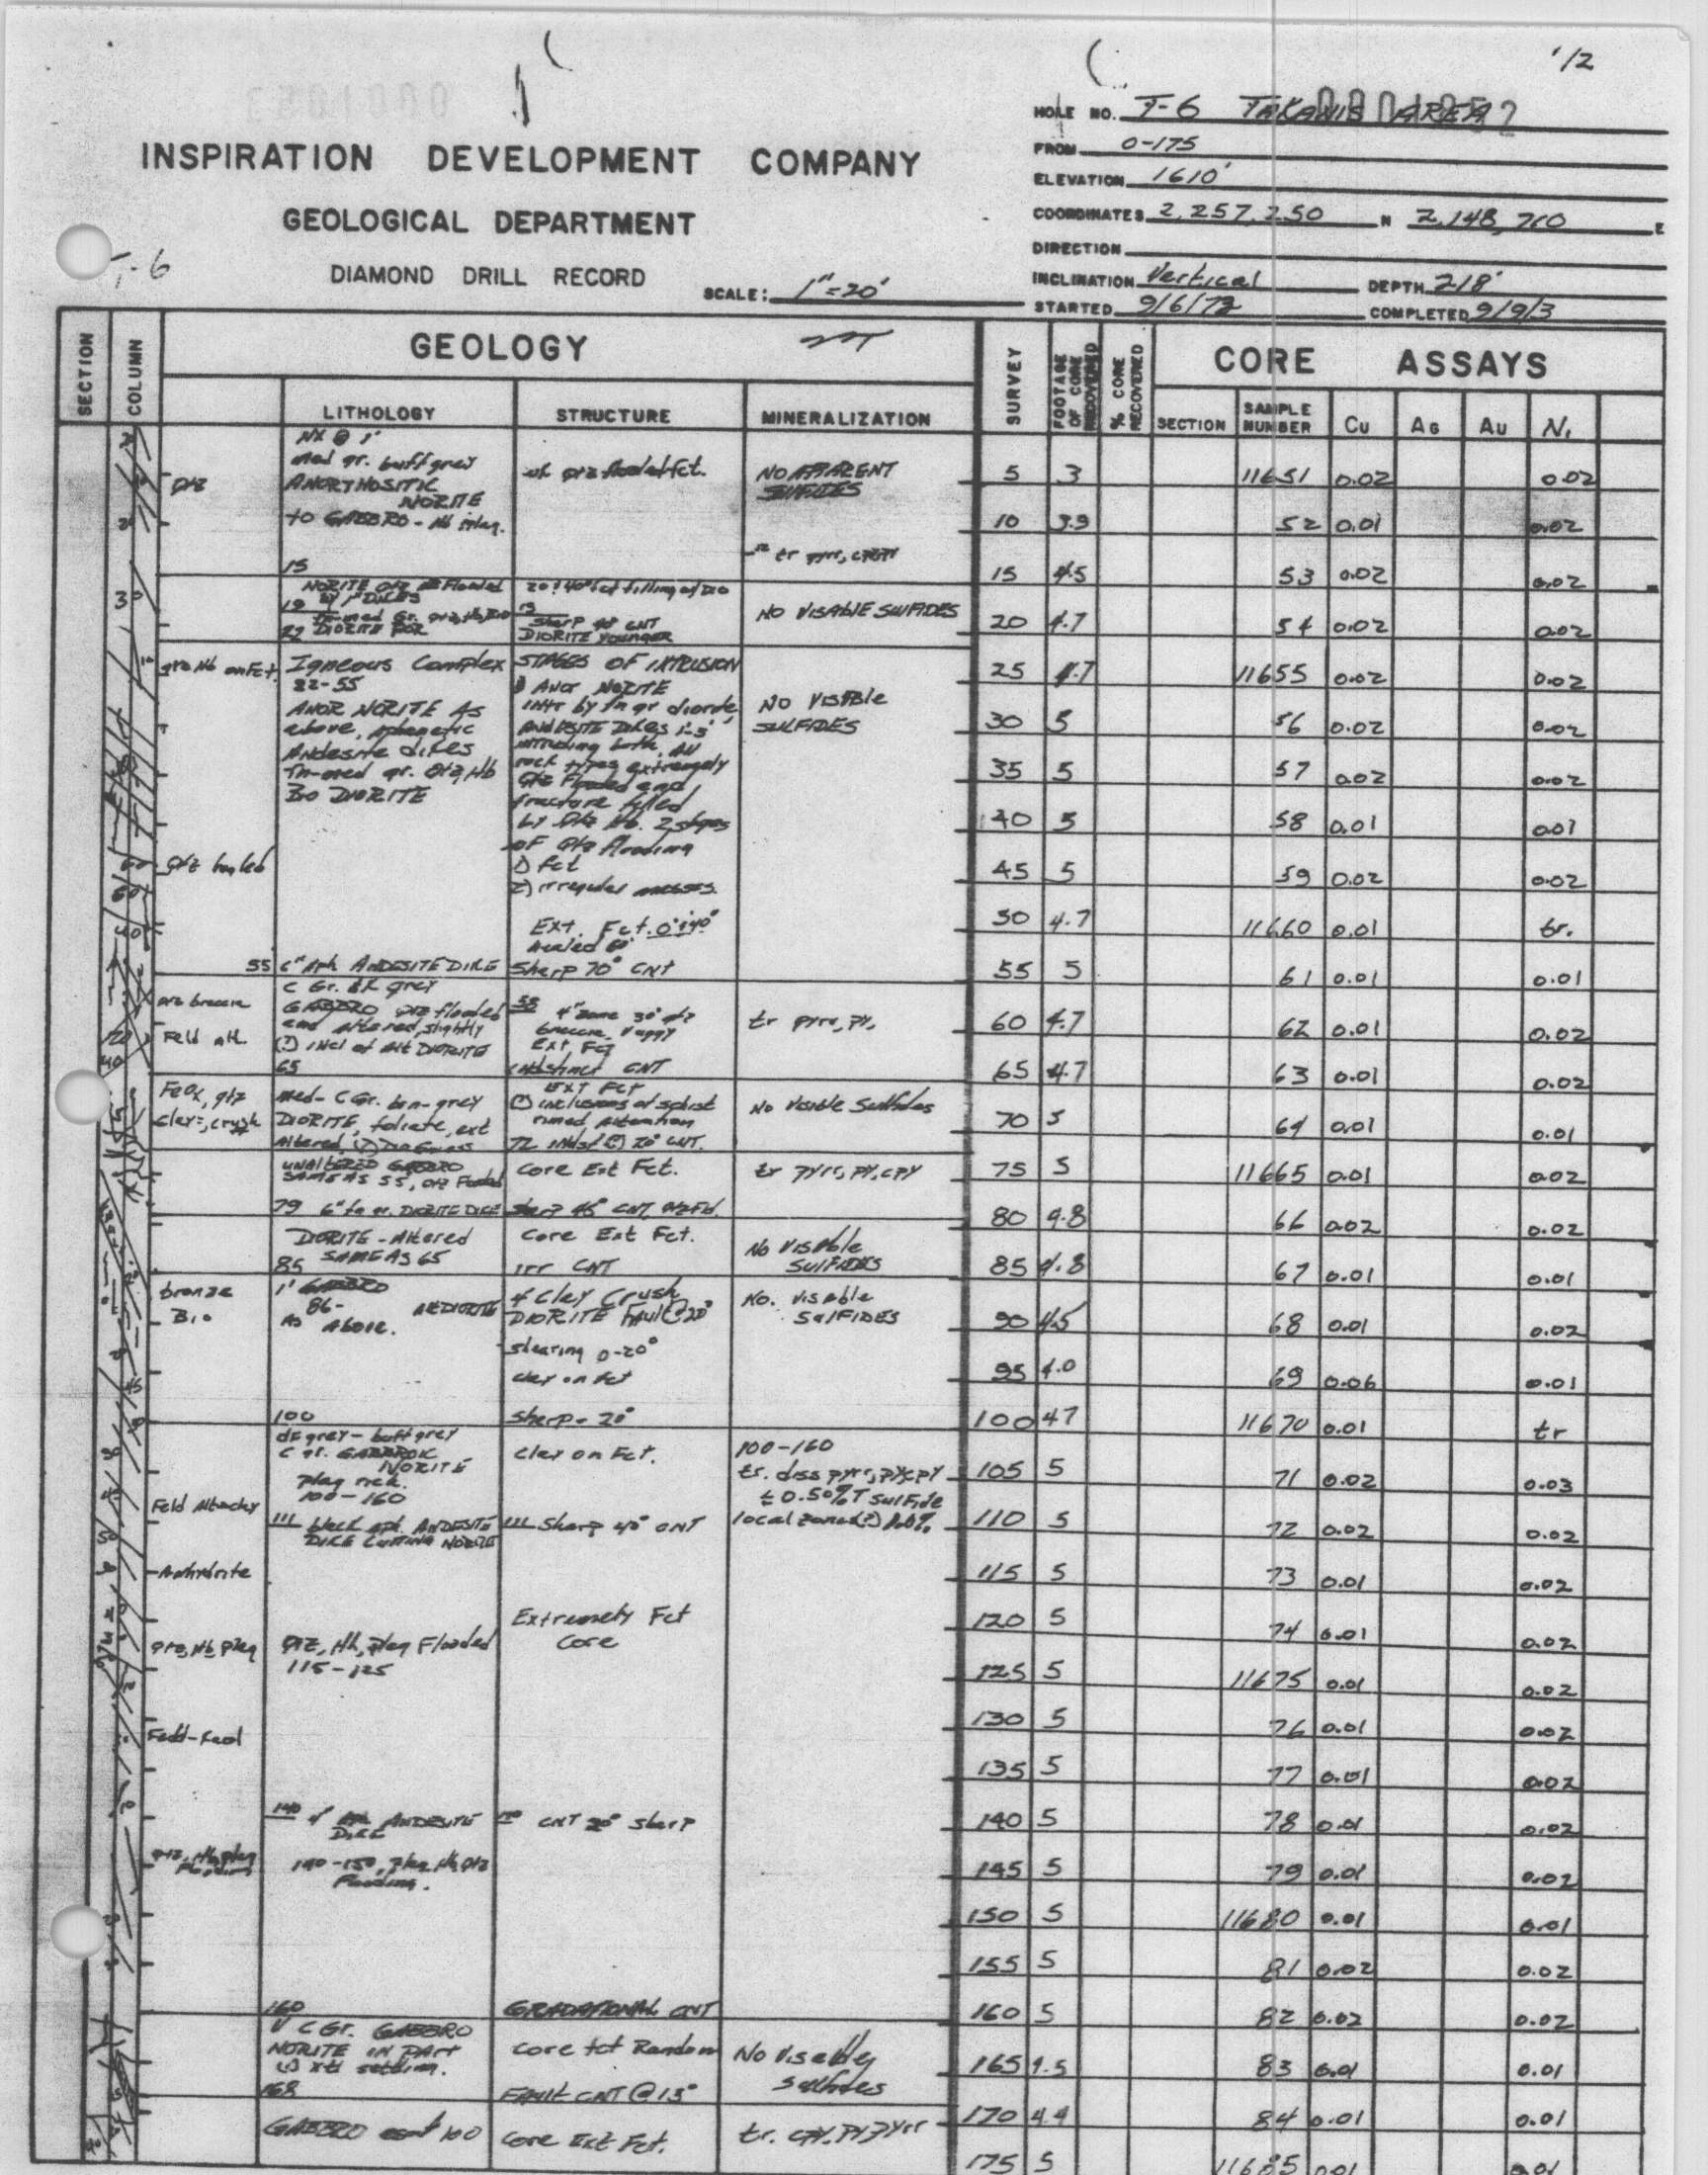 1/2
HOLE NO. T-6 TAKANIS AREA
FROM 0-175
INSPIRATION DEVELOPMENT COMPANY
ELEVATION 1610'
GEOLOGICAL DEPARTMENT
COORDINATES 2,257,250 N 2,148,700 E
DIRECTION
T-6
DIAMOND DRILL RECORD
SCALE: 1"=20'
INCLINATION Vertical DEPTH 218'
STARTED 9/6/73 COMPLETED 9/9/3
SECTION
COLUMN
GEOLOGY
SURVEY
FOOTAGE OF CORE RECOVERED
% CORE RECOVERED
CORE ASSAYS
LITHOLOGY STRUCTURE MINERALIZATION
SECTION SAMPLE NUMBER Cu AG AU Ni
NX @ 1'
med gr. buff grey
ANORTHOSITIC
NORITE
to GABBRO - Hb
NO APPARENT
SULFIDES
qtz
5 3 11651 0.02 0.02
10 3.9 52 0.01 0.02
tr pyrr, cpy
15
15 4.5 53 0.02 0.02
NORITE qtz Flooded
19
22 DIORITE
sharp CNT
DIORITE YOUNGER
NO VISABLE SULFIDES
20 4.7 54 0.02 0.02
Igneous Complex
22-55
ANOR NORITE AS
above, aphanetic
Andesite dikes
fn-med gr. Qtz, Hb
Bo DIORITE
STAGES OF INTRUSION
ANOR NORITE
intr by fn gr diorite
ANDESITE Dikes 1-3'
intruding both. All
rock types extremely
Qtz Flooded and
fracture filled
by Qtz Hb. 2 stages
of Qtz flooding
1) fct
2) irregular masses
NO VISIBLE
SULFIDES
25 4.7 11655 0.02 0.02
30 5 56 0.02 0.02
35 5 57 0.02 0.02
40 5 58 0.01 0.01
45 5 59 0.02 0.02
Ext. Fct.
healed
50 4.7 11660 0.01 tr.
55 6" Aph ANDESITE DIKE Sharp 70° CNT
55 5 61 0.01 0.01
C Gr. dk grey
GABBRO qtz flooded
and altered, slightly
(?) incl of Alt DIORITE
65
qtz breccia
Feld alt.
55 4" zone 30° qtz
breccia, vuggy
Ext Fct
indistinct CNT
tr pyrr, py.
60 4.7 62 0.01 0.02
65 4.7 63 0.01 0.02
FeOx, qtz
clay, crush
med-C Gr. brn-grey
DIORITE, foliate, ext
EXT FCT
(?) inclusions of schist
rimed alteration
72
No visible Sulfides
70 5 64 0.01 0.01
UNALTERED GABBRO
SAME AS 55, qtz Flooded
Core Ext Fct.
tr pyrr, py, cpy
75 5 11665 0.01 0.02
79 6" fn gr. DIORITE DIKE sharp 45° CNT
80 4.8 66 0.02 0.02
DIORITE - Altered
SAME AS 65
85
Core Ext Fct.
irr CNT
No Visible
Sulfides
85 4.8 67 0.01 0.01
bronze
Bio
1' GABBRO
86- Alt DIORITE
As Above.
4' Clay Crush
DIORITE Fault @ 20°
shearing 0-20°
clay on fct
No. visable
SulFIDES
90 4.5 68 0.01 0.02
95 4.0 69 0.06 0.01
100
Sharp - 20°
100 4.7 11670 0.01 tr
dk grey - buff grey
C gr. GABBROIC
NORITE
plag rich
100-160
clay on Fct.
100-160
tr. diss pyrr, py, cpy
≤ 0.50% T sulfide
105 5 71 0.02 0.03
111 black aph. ANDESITE
DIKE CUTTING NORITE
111 Sharp 40° CNT
110 5 72 0.02 0.02
115 5 73 0.01 0.02
Extremely Fct
Core
120 5 74 0.01 0.02
qtz, Hb, plag
qtz, Hb, plag Flooded
115-125
125 5 11675 0.01 0.02
130 5 76 0.01 0.02
135 5 77 0.01 0.02
140 Aph ANDESITE
DIKE
140 CNT 20° sharp
140 5 78 0.01 0.02
qtz, Hb, plag
Flooding
140-150, plag, Hb, qtz
Flooding.
145 5 79 0.01 0.02
150 5 11680 0.01 0.01
155 5 81 0.02 0.02
160
GRADATIONAL CNT
160 5 82 0.02 0.02
V C Gr. GABBRO
NORITE IN PART
(?) xtl settling.
168
Core fct Random
Fault CNT @ 15°
No visable
Sulfides
165 4.5 83 0.01 0.01
170 4.4 84 0.01 0.01
GABBRO 100
Core Ext Fct.
tr. cpy, py, pyrr
175 5 11685 0.01 0.01